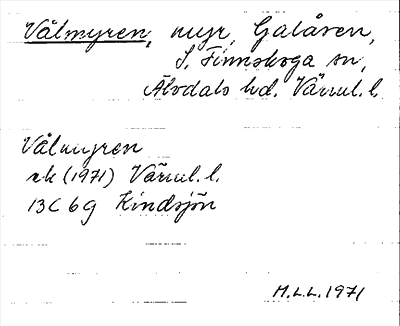 Vålmyren, myr, Galåsen,
S. Finnskoga sn,
Älvdals hd. Värml. l.
Vålmyren
ek (1971) Värml. l.
13C 6g Kindsjön
H.L.L. 1971